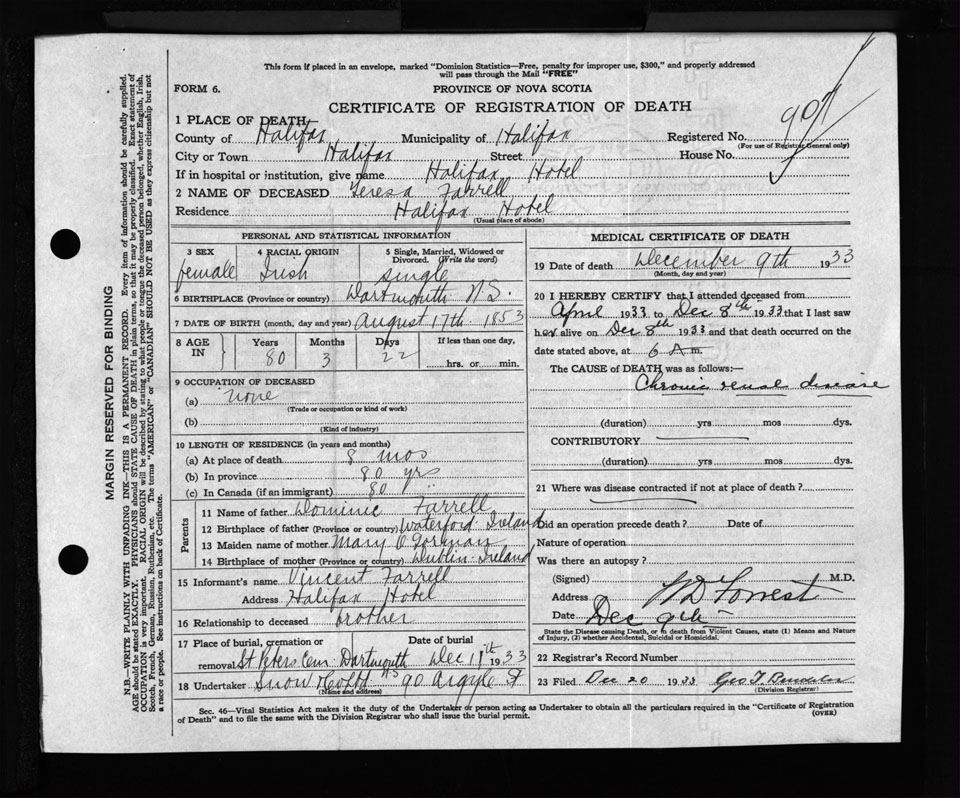 This form if placed in an envelope, marked "Dominion Statistics—Free, penalty for improper use, $300," and properly addressed
will pass through the Mail "FREE"
FORM 6.
PROVINCE OF NOVA SCOTIA
CERTIFICATE OF REGISTRATION OF DEATH
1 PLACE OF DEATH
County of Halifax Municipality of Halifax Registered No. 901
(For use of Registrar General only)
City or Town Halifax Street House No.
If in hospital or institution, give name Halifax Hotel
2 NAME OF DECEASED Teresa Farrell
Residence Halifax Hotel
(Usual place of abode)
PERSONAL AND STATISTICAL INFORMATION
3 SEX 4 RACIAL ORIGIN 5 Single, Married, Widowed or Divorced. (Write the word)
female Irish single
6 BIRTHPLACE (Province or country) Dartmouth N.S.
7 DATE OF BIRTH (month, day and year) August 17th 1853
8 AGE IN Years Months Days If less than one day,
80 3 22 hrs. or min.
9 OCCUPATION OF DECEASED
(a) none
(Trade or occupation or kind of work)
(b)
(Kind of industry)
10 LENGTH OF RESIDENCE (in years and months)
(a) At place of death 8 mos
(b) In province 80 yrs
(c) In Canada (if an immigrant) 80 "
Parents
11 Name of father Dominic Farrell
12 Birthplace of father (Province or country) Waterford Ireland
13 Maiden name of mother Mary O'Gorman
14 Birthplace of mother (Province or country) Dublin Ireland
15 Informant's name Vincent Farrell
Address Halifax Hotel
16 Relationship to deceased brother
17 Place of burial, cremation or Date of burial
removal St Peters Cem Dartmouth NS Dec 11th 1933
18 Undertaker Snow & Co Ltd 90 Argyle St
(Name and address)
MEDICAL CERTIFICATE OF DEATH
19 Date of death December 9th 1933
(Month, day and year)
20 I HEREBY CERTIFY that I attended deceased from
April 1933 to Dec 8th 1933 that I last saw
her alive on Dec 8th 1933 and that death occurred on
date stated above, at 6 A m.
The CAUSE of DEATH was as follows:—
Chronic renal disease
(duration) yrs mos dys.
CONTRIBUTORY
(duration) yrs. mos. dys.
21 Where was disease contracted if not at place of death?
Did an operation precede death? Date of
Nature of operation
Was there an autopsy?
(Signed) M.D.
Address W D Forrest
Date Dec 9th
State the Disease causing Death, or in death from Violent Causes, state (1) Means and Nature
of Injury, (2) whether Accidental, Suicidal or Homicidal.
22 Registrar's Record Number
23 Filed Dec 20 1933 Geo T
(Division Registrar)
Sec. 46—Vital Statistics Act makes it the duty of the Undertaker or person acting as Undertaker to obtain all the particulars required in the "Certificate of Registration
of Death" and to file the same with the Division Registrar who shall issue the burial permit.
(OVER)
MARGIN RESERVED FOR BINDING
N.B.—WRITE PLAINLY WITH UNFADING INK—THIS IS A PERMANENT RECORD. Every item of information should be carefully supplied.
AGE should be stated EXACTLY. PHYSICIANS should STATE CAUSE OF DEATH in plain terms, so that it may be properly classified. Exact statement of
OCCUPATION is very important. RACIAL ORIGIN will be described by stating to what people or tongue the deceased person belonged, whether English, Irish,
Scotch, French, German, Russian, Ruthenian, etc. The terms "AMERICAN" or "CANADIAN" SHOULD NOT BE USED as they express citizenship but not
a race or people. See instructions on back of Certificate.